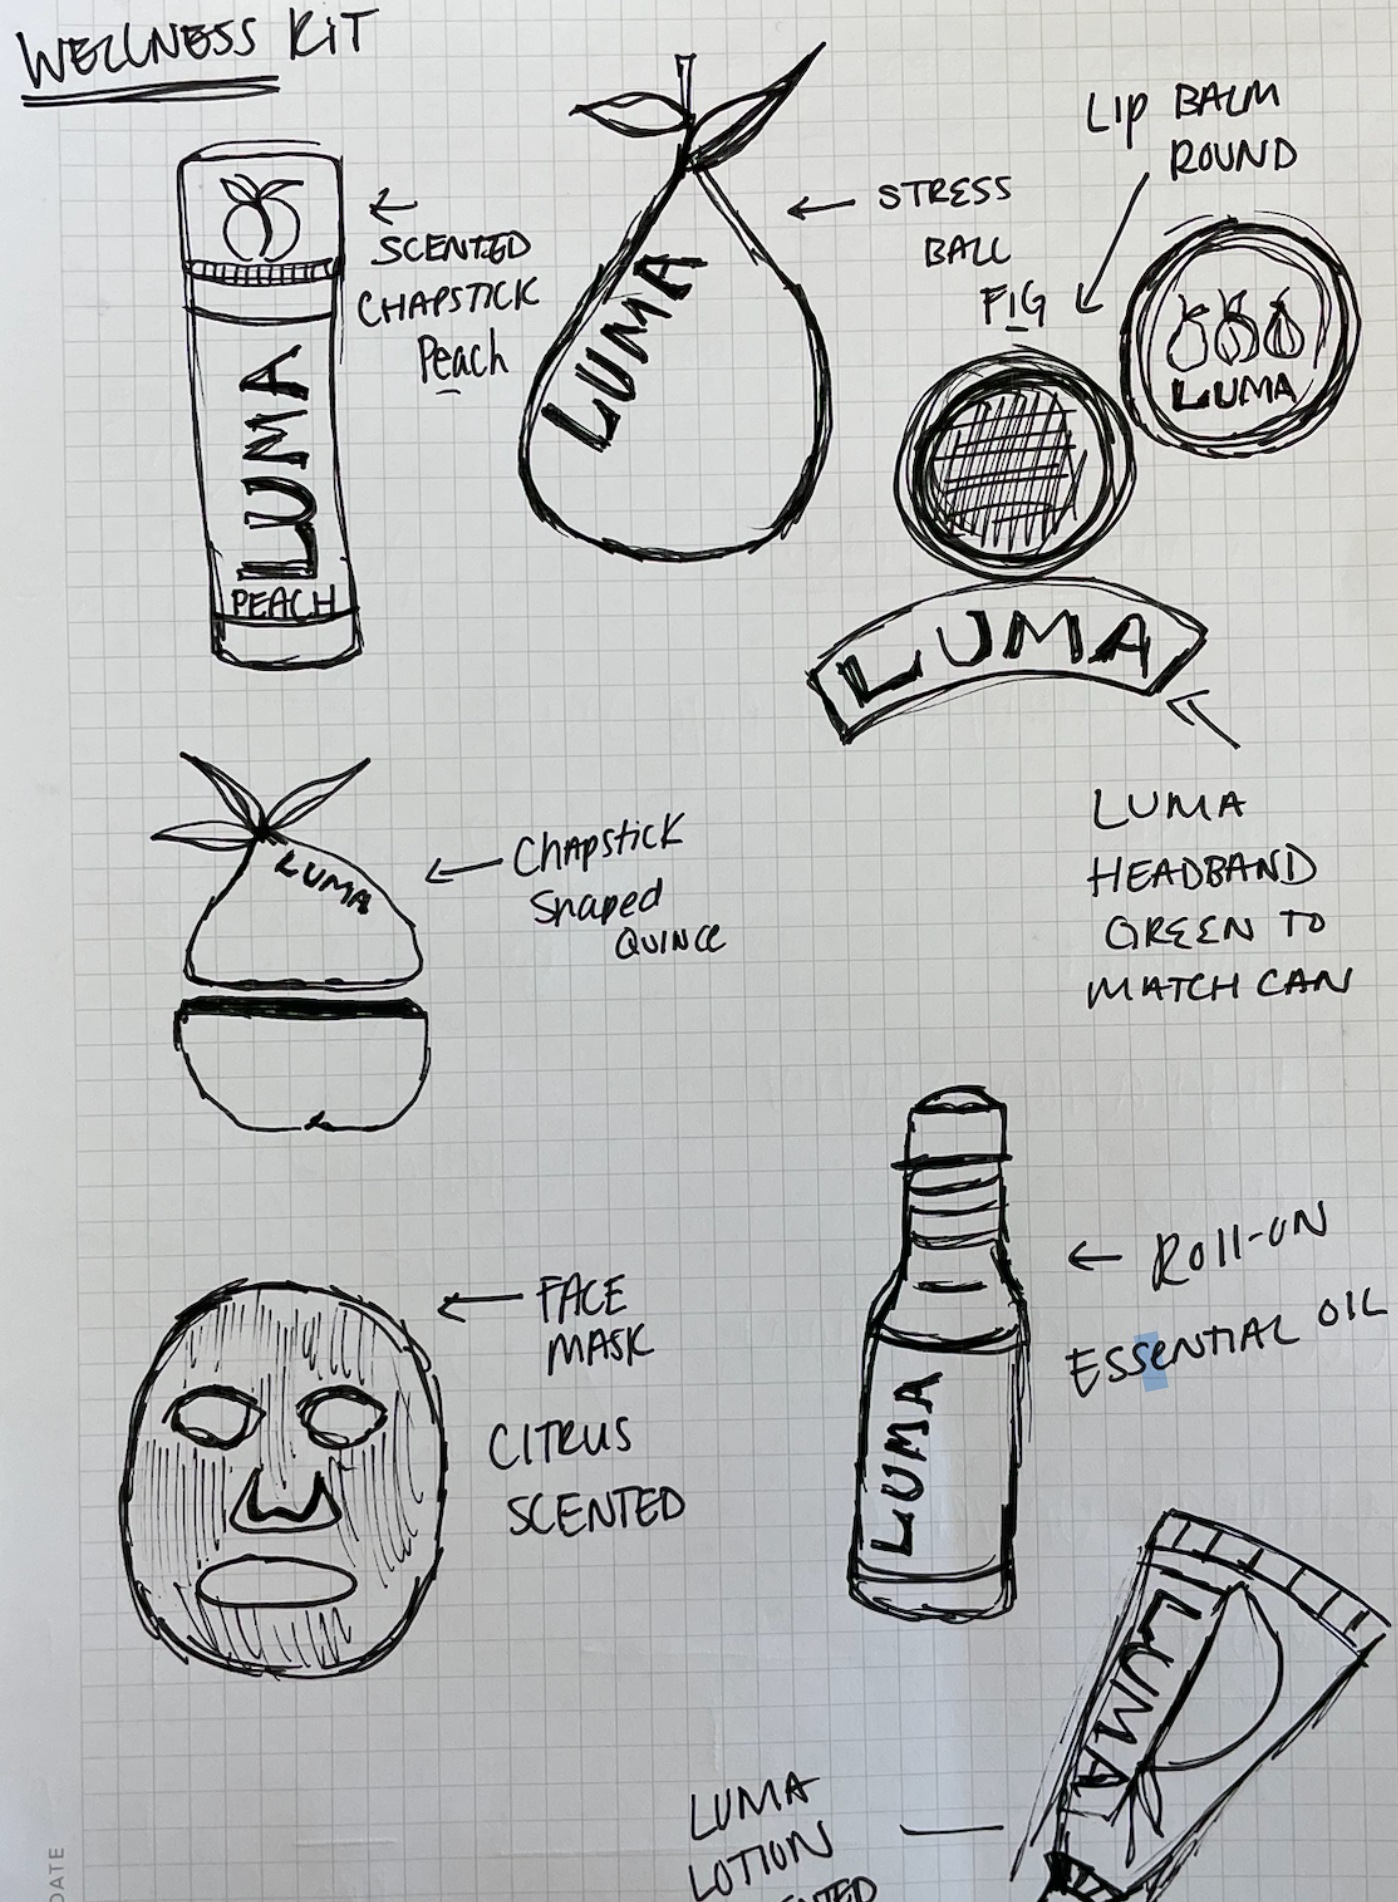 WELLNESS KIT
SCENTED
CHAPSTICK
Peach
LUMA
PEACH
LUMA
STRESS
BALL
FIG
Lip BALM
ROUND
LUMA
LUMA
LUMA
HEADBAND
GREEN TO
MATCH CAN
LUMA
Chapstick
Shaped
QUINCE
FACE
MASK
CITRUS
SCENTED
LUMA
Roll-ON
ESSeNTIAL OIL
LUMA
LUMA
LOTION
DATE